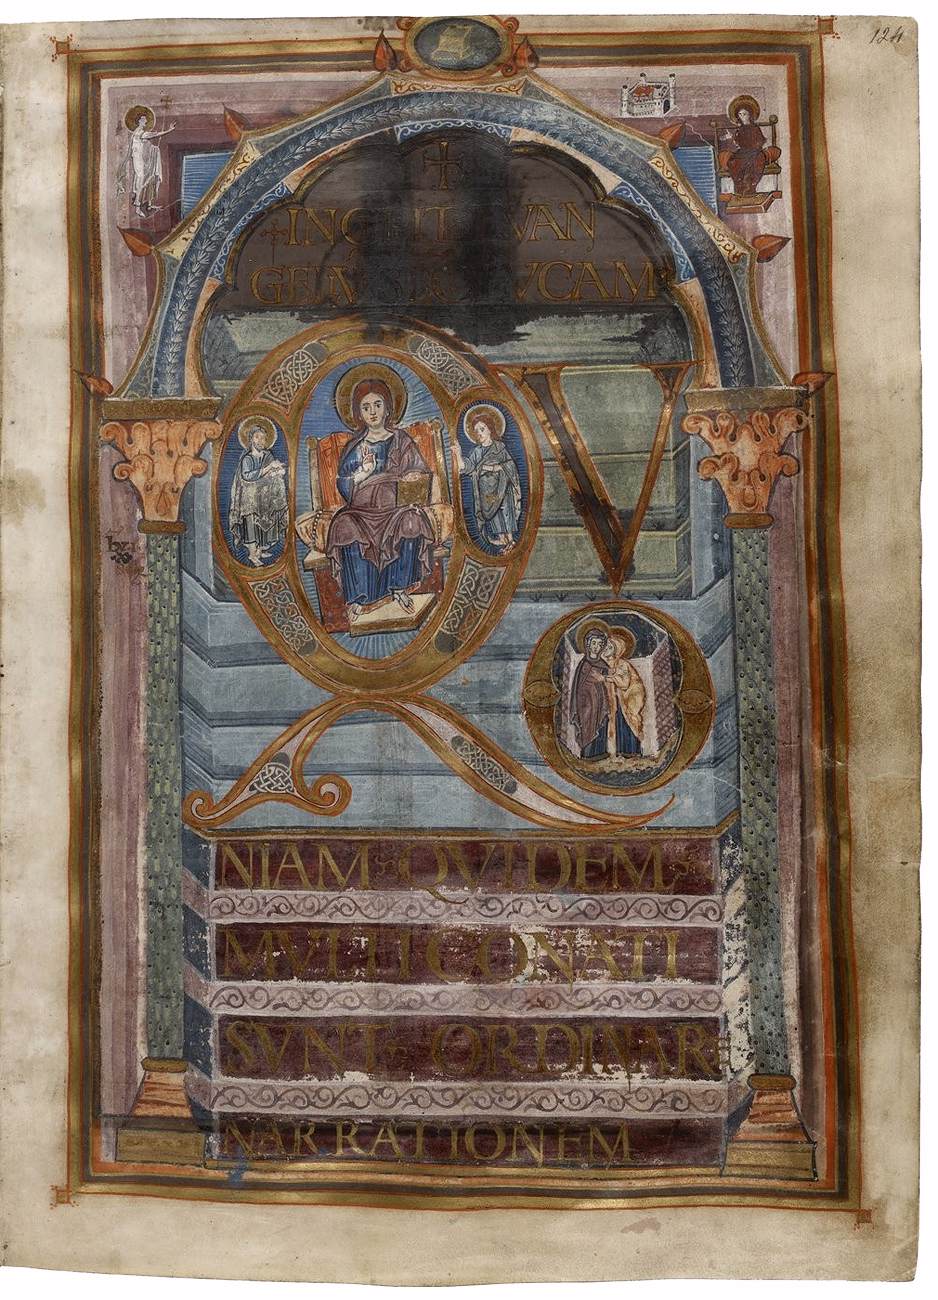 124
+
+ INCIPIT EVAN
GELIV SEC LVCAM
Q V
O
NIAM QVIDEM
MVLTI CONATI
SVNT ORDINARE
NARRATIONEM